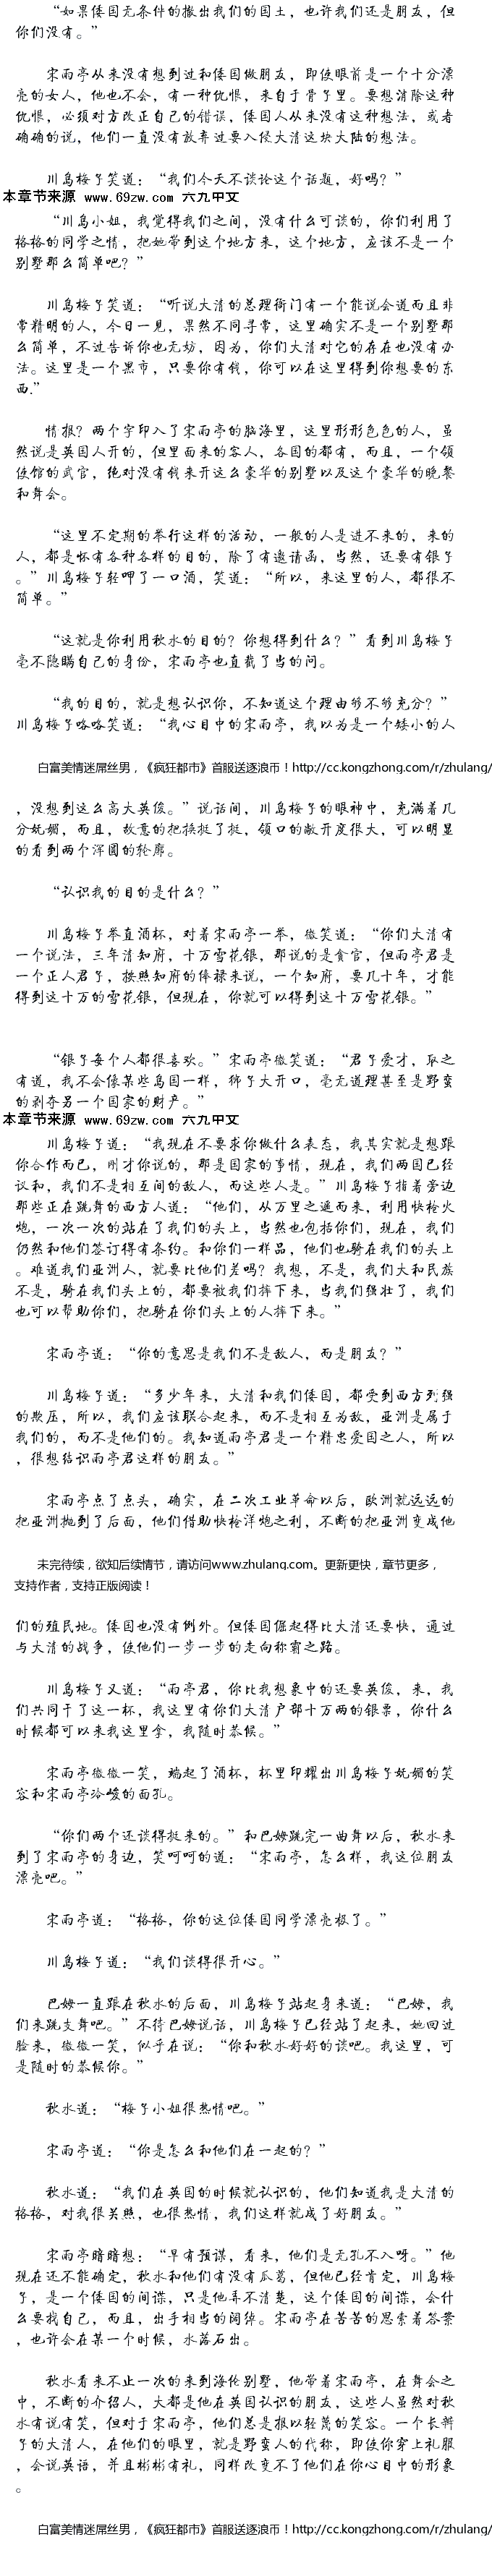 “如果倭国无条件的撤出我们的国土，也许我们还是朋友，但
你们没有。”
宋雨亭从来没有想到过和倭国做朋友，即使眼前是一个十分漂
亮的女人，他也不会，有一种仇恨，来自于骨子里。要想消除这种
仇恨，必须对方改正自己的错误，倭国人从来没有这种想法，或者
确确的说，他们一直没有放弃过要入侵大清这块大陆的想法。
川岛梅子笑道：“我们今天不谈论这个话题，好吗？”
本章节来源 www.69zw.com 六九中文
“川岛小姐，我觉得我们之间，没有什么可谈的，你们利用了
格格的同学之情，把她带到这个地方来，这个地方，应该不是一个
别墅那么简单吧？”
川岛梅子笑道：“听说大清的总理衙门有一个能说会道而且非
常精明的人，今日一见，果然不同寻常，这里确实不是一个别墅那
么简单，不过告诉你也无妨，因为，你们大清对它的存在也没有办
法。这里是一个黑市，只要你有钱，你可以在这里得到你想要的东
西.”
情报？两个字印入了宋雨亭的脑海里，这里形形色色的人，虽
然说是英国人开的，但里面来的客人，各国的都有，而且，一个领
使馆的武官，绝对没有钱来开这么豪华的别墅以及这个豪华的晚餐
和舞会。
“这里不定期的举行这样的活动，一般的人是进不来的，来的
人，都是怀有各种各样的目的，除了有邀请函，当然，还要有银子
。”川岛梅子轻呷了一口酒，笑道：“所以，来这里的人，都很不
简单。”
“这就是你利用秋水的目的？你想得到什么？”看到川岛梅子
毫不隐瞒自己的身份，宋雨亭也直截了当的问。
“我的目的，就是想认识你，不知道这个理由够不够充分？”
川岛梅子咯咯笑道：“我心目中的宋雨亭，我以为是一个矮小的人
白富美情迷屌丝男，《疯狂都市》首服送逐浪币！http://cc.kongzhong.com/r/zhulang/
，没想到这么高大英俊。”说话间，川岛梅子的眼神中，充满着几
分妩媚，而且，故意的把揍挺了挺，领口的敞开度很大，可以明显
的看到两个浑圆的轮廓。
“认识我的目的是什么？”
川岛梅子举直酒杯，对着宋雨亭一举，微笑道：“你们大清有
一个说法，三年清知府，十万雪花银，那说的是贪官，但雨亭君是
一个正人君子，按照知府的俸禄来说，一个知府，要几十年，才能
得到这十万的雪花银，但现在，你就可以得到这十万雪花银。”
“银子每个人都很喜欢。”宋雨亭微笑道：“君子爱才，取之
有道，我不会像某些岛国一样，狮子大开口，毫无道理甚至是野蛮
的剥夺另一个国家的财产。”
本章节来源 www.69zw.com 六九中文
川岛梅子道：“我现在不要求你做什么表态，我其实就是想跟
你合作而已，刚才你说的，那是国家的事情，现在，我们两国已经
议和，我们不是相互间的敌人，而这些人是。”川岛梅子指着旁边
那些正在跳舞的西方人道：“他们，从万里之遥而来，利用快枪火
炮，一次一次的站在了我们的头上，当然也包括你们，现在，我们
仍然和他们签订得有条约。和你们一样品，他们也骑在我们的头上
。难道我们亚洲人，就要比他们差吗？我想，不是，我们大和民族
不是，骑在我们头上的，都要被我们摔下来，当我们强壮了，我们
也可以帮助你们，把骑在你们头上的人摔下来。”
宋雨亭道：“你的意思是我们不是敌人，而是朋友？”
川岛梅子道：“多少年来，大清和我们倭国，都受到西方列强
的欺压，所以，我们应该联合起来，而不是相互为敌，亚洲是属于
我们的，而不是他们的。我知道雨亭君是一个精忠爱国之人，所以
，很想结识雨亭君这样的朋友。”
宋雨亭点了点头，确实，在二次工业革命以后，欧洲就远远的
把亚洲抛到了后面，他们借助快枪洋炮之利，不断的把亚洲变成他
未完待续，欲知后续情节，请访问www.zhulang.com。更新更快，章节更多，
支持作者，支持正版阅读！
们的殖民地。倭国也没有例外。但倭国倔起得比大清还要快，通过
与大清的战争，使他们一步一步的走向称霸之路。
川岛梅子又道：“雨亭君，你比我想象中的还要英俊，来，我
们共同干了这一杯，我这里有你们大清户部十万两的银票，你什么
时候都可以来我这里拿，我随时恭候。”
宋雨亭微微一笑，端起了酒杯，杯里印耀出川岛梅子妩媚的笑
容和宋雨亭冷峻的面孔。
“你们两个还谈得挺来的。”和巴姆跳完一曲舞以后，秋水来
到了宋雨亭的身边，笑呵呵的道：“宋雨亭，怎么样，我这位朋友
漂亮吧。”
宋雨亭道：“格格，你的这位倭国同学漂亮极了。”
川岛梅子道：“我们谈得很开心。”
巴姆一直跟在秋水的后面，川岛梅子站起身来道：“巴姆，我
们来跳支舞吧。”不待巴姆说话，川岛梅子已经站了起来，她回过
脸来，微微一笑，似乎在说：“你和秋水好好的谈吧。我这里，可
是随时的恭候你。”
秋水道：“梅子小姐很热情吧。”
宋雨亭道：“你是怎么和他们在一起的？”
秋水道：“我们在英国的时候就认识的，他们知道我是大清的
格格，对我很关照，也很热情，我们这样就成了好朋友。”
宋雨亭暗暗想：“早有预谋，看来，他们是无孔不入呀。”他
现在还不能确定，秋水和他们有没有瓜葛，但他已经肯定，川岛梅
子，是一个倭国的间谍，只是他弄不清楚，这个倭国的间谍，会什
么要找自己，而且，出手相当的阔绰。宋雨亭在苦苦的思索着答案
，也许会在某一个时候，水落石出。
秋水看来不止一次的来到海伦别墅，他带着宋雨亭，在舞会之
中，不断的介绍人，大都是他在英国认识的朋友，这些人虽然对秋
水有说有笑，但对于宋雨亭，他们总是报以轻蔑的笑容。一个长辫
子的大清人，在他们的眼里，就是野蛮人的代称，即使你穿上礼服
，会说英语，并且彬彬有礼，同样改变不了他们在你心目中的形象
。
白富美情迷屌丝男，《疯狂都市》首服送逐浪币！http://cc.kongzhong.com/r/zhulang/